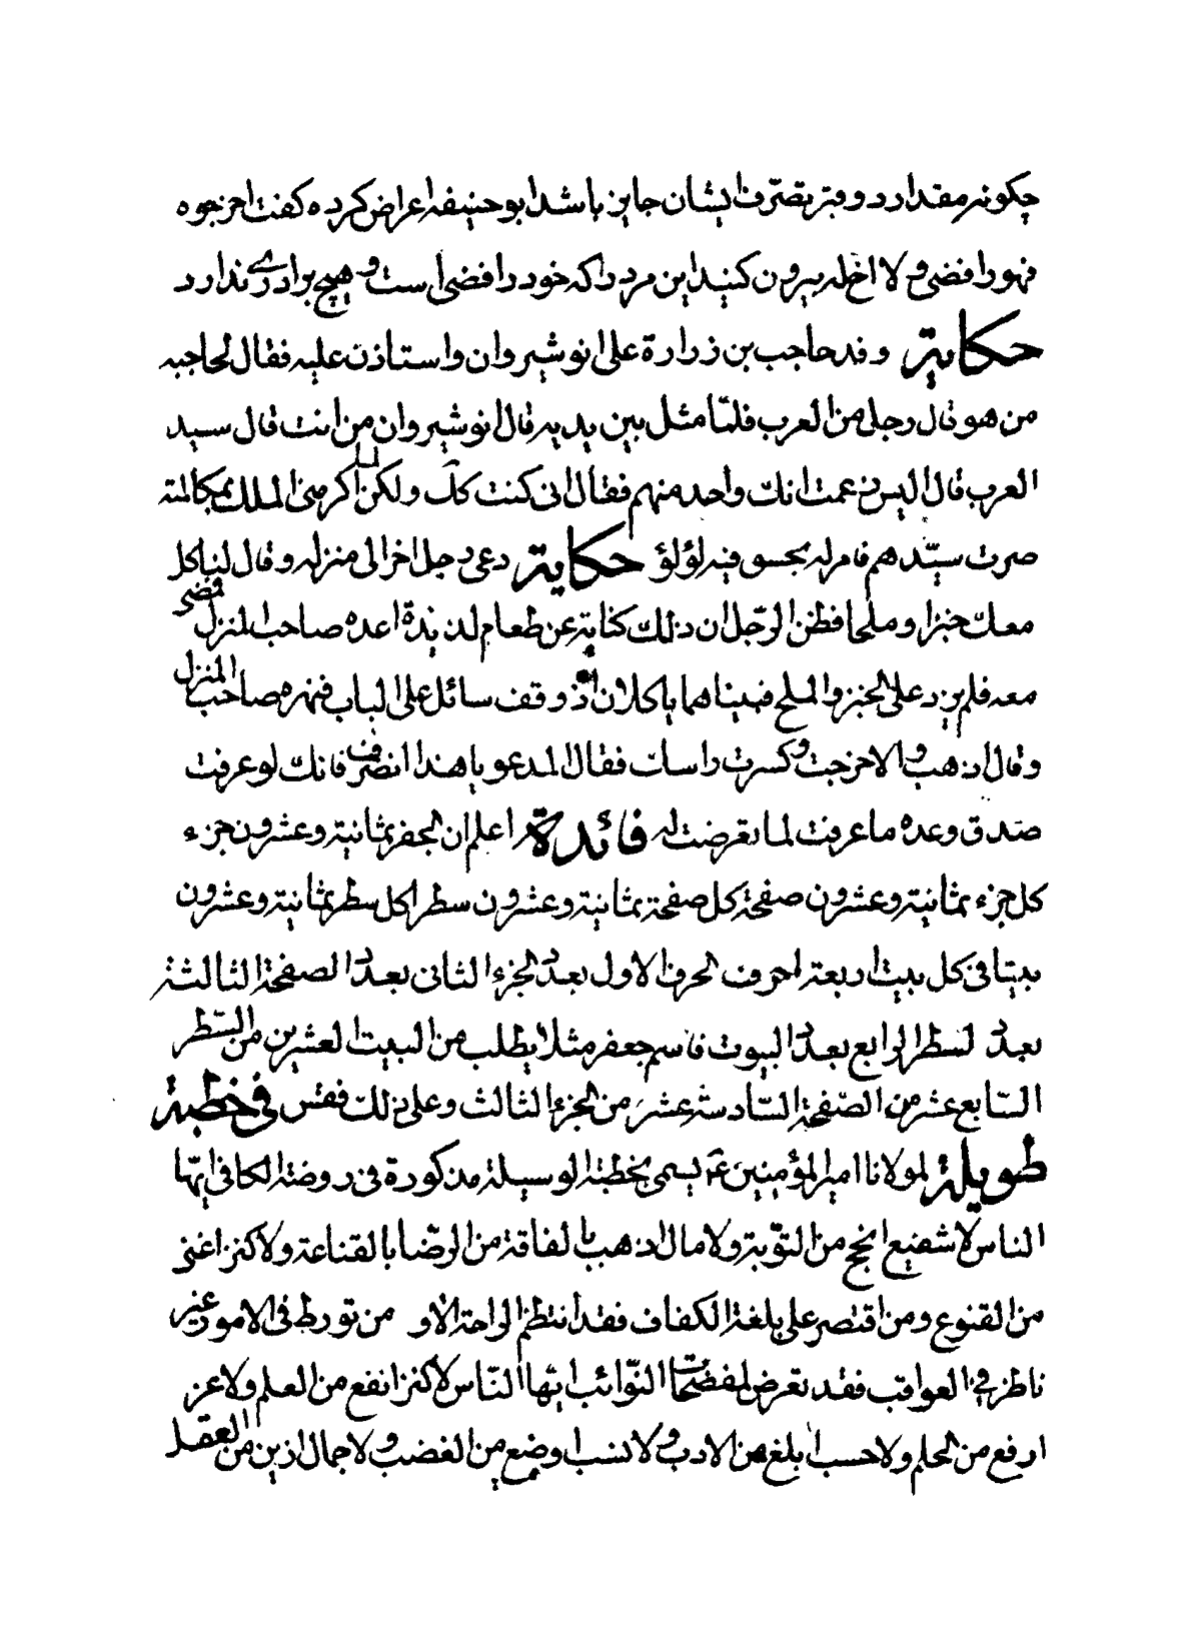 چکونه مقدار دو وقیه تصرف ایشان جایز باشد ابو حنیفه اعراض کرده کفت اخرجوه
فهو رافضی و لا اخ له بیرون کنید این مرد را که خود رافضی است و هیچ برادری ندارد
حکایة وفد حاجب بن زرارة علی انوشیروان واستاذن علیه فقال لحاجبه
من هو قال رجل من العرب فلما مثل بین یدیه قال انوشیروان من انت قال سید
العرب قال الیس زعمت انک واحد منهم فقال انی کنت کک ولکن لما اکرمنی الملک بمکالمته
صرت سیّدهم فامر له بحسو فیه لؤلؤ حکایة دعی رجل اخر الی منزله وقال لناکل
معک خبزا وملحا فظن الرّجل ان ذلک کنایة عن طعام لذیذة اعده صاحب المنزل فمضی
معه فلم یزد علی الخبز والملح فبیناهما یاکلان اذ وقف سائل علی الباب فنهره صاحب المنزل
وقال اذهب والا خرجت وکسرت راسک فقال المدعو یا هذا انصرف فانک لو عرفت
صدق وعده ما عرفت لما تعرضت له فائدة اعلم ان الجفر ثمانیة وعشرون جزء
کل جزء ثمانیة وعشرون صفحة کل صفحة ثمانیة وعشرون سطرا کل سطر ثمانیة وعشرون
بیتا فی کل بیت اربعة احرف الحرف الاول بعدد الجزء الثانی بعدد الصفحة الثالثة
بعدد السطر الرابع بعدد البیوت فاسم جعفر مثلا یطلب من البیت العشرین من السّطر
السّابع عشر من الصّفحة السّادسة عشر من الجزء الثالث وعلی ذلک فقس فی خطبة
طویلة لمولانا امیر المؤمنین عم یسمی بخطبة الوسیلة مذکورة فی روضة الکافی ایّها
الناس لا شفیع انجح من التوّبة ولا مال اذهب بالفاقة من الرضّا بالقناعة ولا کنز اغنی
من القنوع ومن اقتصر علی بلغة الکفاف فقد انتظم الراحة الا و من تورط فی الامور غیر
ناظر فی العواقب فقد تعرض لمفضحات النوّائب ایّها النّاس لا کنز انفع من العلم ولا عز
ارفع من الحلم ولا حسب ابلغ من الادب ولا نسب اوضع من الغضب ولا جمال ازین من العقل